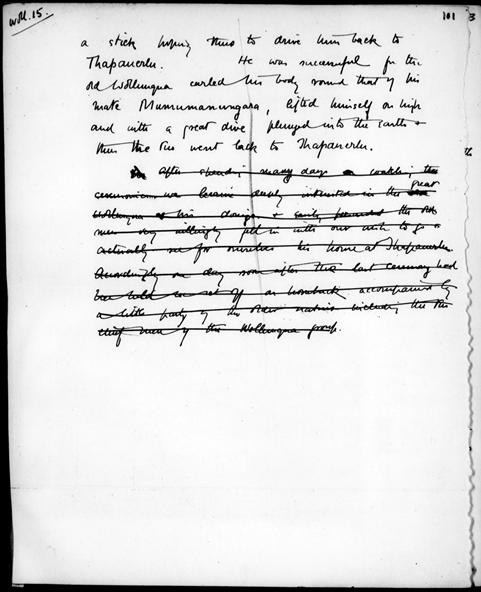 Woll. 15.
101
a stick hoping thus to drive him back to
Thapauerlu. He was successful for the
old Wollunqua curled his body round that of his
mate Mumumanungara, lifted himself on high
and with a great dive plunged into the earth &
thus the two went back to Thapauerlu.
After spending many days watching the
ceremonies we became deeply interested in the great
Wollunqua & his doings & the old
men very willingly fell in with our wish to go &
actually see for ourselves his home at Thapauerlu.
Accordingly one day soon after the last ceremony had
been held we set off on horseback accompanied by
a little party of the older natives including the two
chief men of the Wollunqua group.